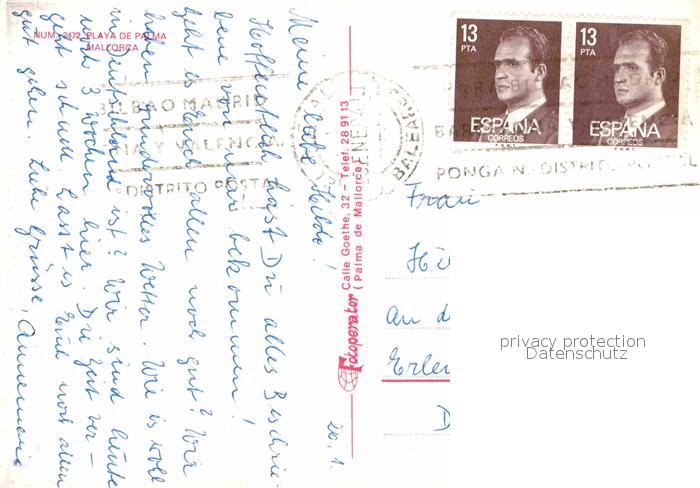 NUM. 2472 PLAYA DE PALMA
MALLORCA
20. 1.
Meine liebe Hilde!
Hoffentlich hast Du alles Beschrie-
bene von mir bekommen!
Geht es Euch allen noch gut? Wir
haben wundervolles Wetter. Wie es wohl
in Deutschland ist? Wir sind heute
noch 3 Wochen hier. Die Zeit ver-
geht schnell. Lasst es Euch noch allen
gut gehen. Liebe Grüsse, Annemarie
Fotoperator
Calle Goethe, 32 - Telef. 28 91 13
(Palma de Mallorca)
13
PTA
ESPAÑA
CORREOS
F.N.M.T.
13
PTA
ESPAÑA
CORREOS
F.N.M.T.
BILBAO MADRID
Y VALENCIA
DISTRITO POSTAL
BALEARES
PONGA N. DISTRITO
Frau
Hi
An d
Erle
D
privacy protection
Datenschutz